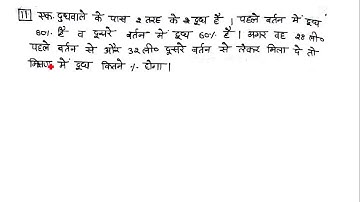 11 एक दुधवाले के पास 2 तरह के दूध है | पहले बर्तन में दूध
80% है व दूसरे बर्तन में दूध 60% है | अगर वह 28 ली०
पहले बर्तन से और 32 ली० दूसरे बर्तन से लेकर मिला दे तो
मिश्रण में दूध कितने % होगा |